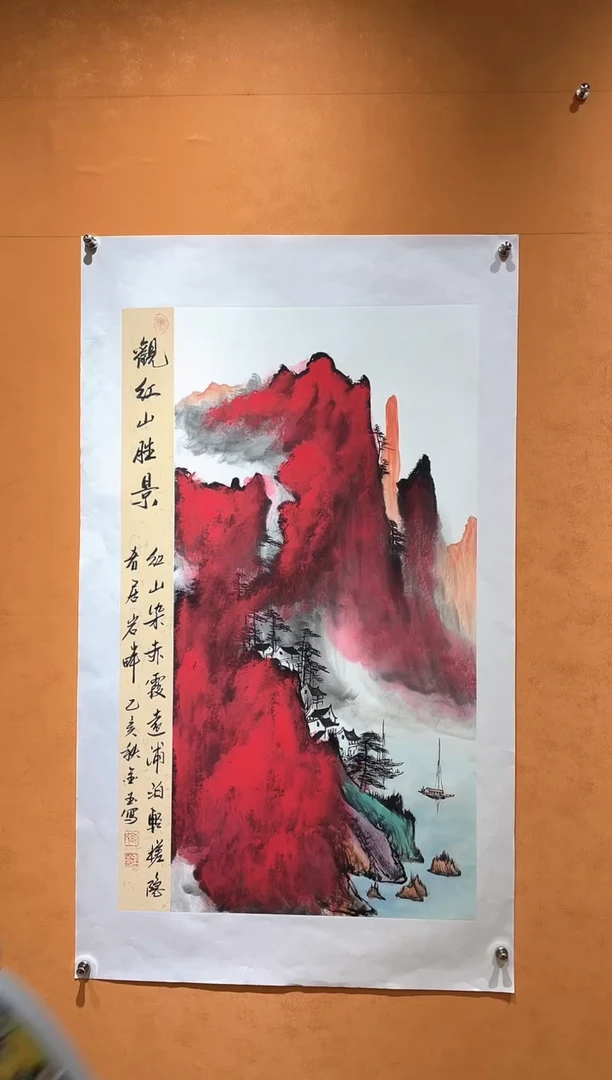 觀红山胜景
红山染赤霞遠浦泊輕槎隐
者居岩畔 乙亥秋金玉寫